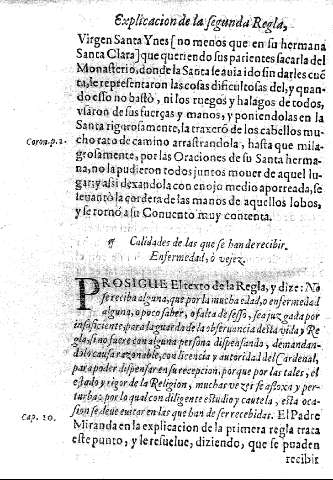 Explicacion de la segunda Regla,
Virgen Santa Ynes [no menos que en su hermana
Santa Clara] que queriendo sus parientes sacarla del
Monasterio, donde la Santa se auia ido sin darles cuē
ta, le representaron las cosas dificultosas del, y quan-
do esso no bastò, ni los ruegos y halagos de todos,
vsaron de sus fuerças y manos, y poniendolas en la
Santa rigurosamente, la traxerō de los cabellos mu-
Coron.p.2.
cho rato de camino arrastrandola, hasta que mila-
grosamente, por las Oraciones de su Santa herma-
na, no la pudieron todos juntos mouer de aquel lu-
gar: y assi dexandola con enojo medio aporreada, se
leuantò la cordera de las manos de aquellos lobos,
y se tornò a su Conuento muy contenta.
¶ Calidades de las que se han de recibir.
Enfermedad, ò vejez.
PROSIGUE El texto de la Regla, y dize: No
se reciba alguna, que por la mucha edad, o enfermedad
alguna, o poco saber, o falta de sesso, sea juzgada por
insuficiente, para la guarda de la obseruancia desta vida y Re
gla, si no fuere con alguna persona dispensando, demandan-
dolo causa razonable, con licencia y autoridad del Cardenal,
para poder dispensar en su recepcion, porque por las tales, el
estado y rigor de la Religion, muchas vezes se afloxa y per-
turba: por lo qual con diligente estudio y cautela, esta oca
sion se deue euitar en las que han de ser recebidas. El Padre
Cap. 20.
Miranda en la explicacion de la primera regla trata
este punto, y le resuelue, diziendo, que se pueden
recibir